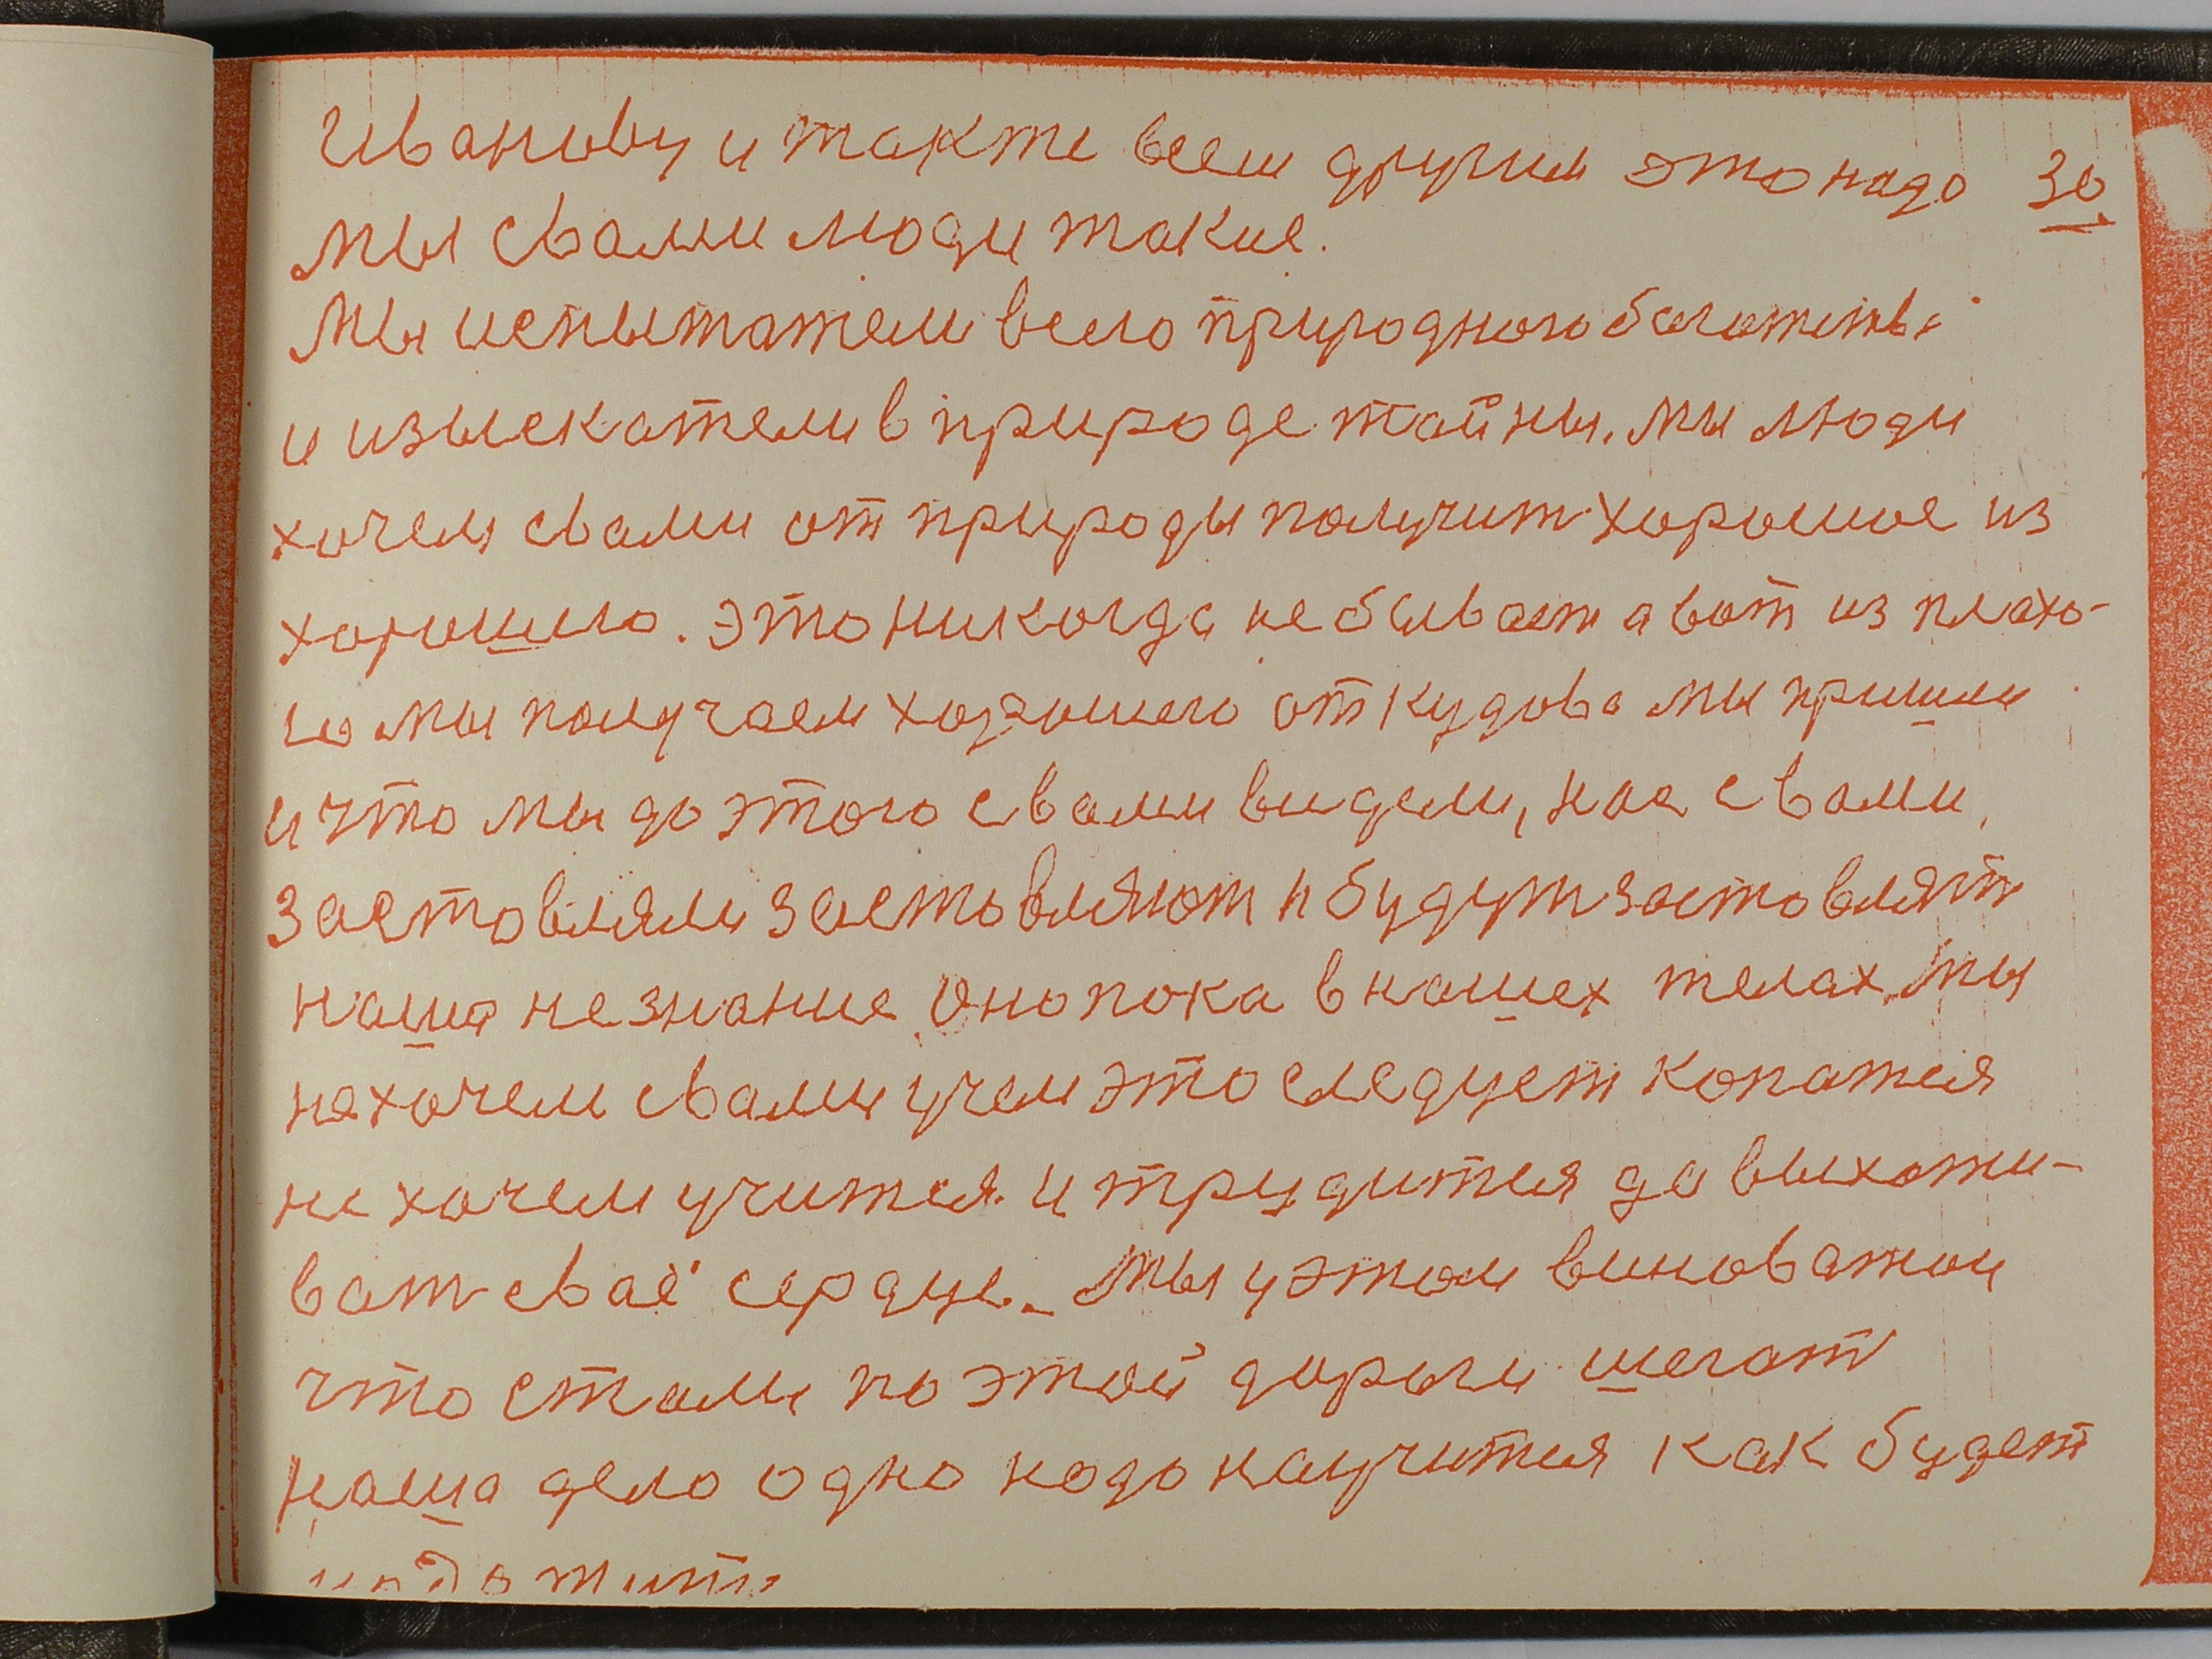 Иванову и такте всем другим это надо 30
мы свами люди такие.
Мы испытатели всего природного богатства
и изыскатели в природе тайны. мы люди
хочем свами от природы получит хорошое из
хорошого. это никогда не бывает а вот из плохо-
го мы получаем хорошого откудова мы пришли
и что мы до этого свами видели, нас свами
заставляли заставляют и будут заставлят
наша незнание Оно пока внашех телах. мы
нехочем свами учем это следует копатся
не хочем учится и трудится да выхожи-
ват сваё сердце. Мы уэтом виноватои
что стали по этой дороги шегат
наша дело одно надо научится как будет
надо жить